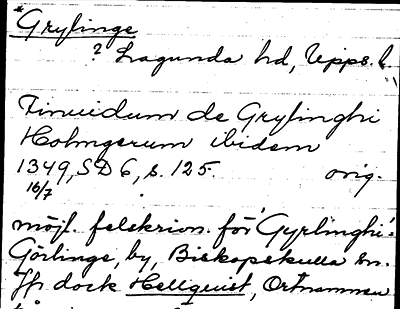 *Grylinge
? Lagunda hd, Upps. l.
Finuidum de Grylinghi
Holmgerum ibidem
1349, SD 6, s. 125. orig.
16/7
möjl. felskrivn. för 'Gyrlinghi':
Görlinge, by, Biskopskulla sn.
Jfr dock Hellquist, Ortnamnen